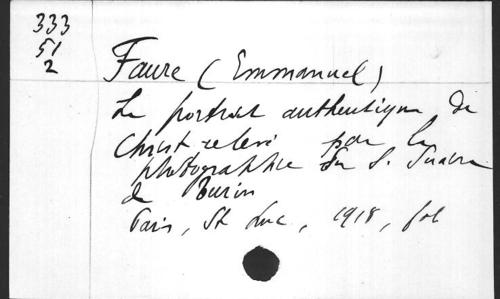 333
51
2
Faure (Emmanuel)
Le portrait authentique du
Christ relevé par la
photographie du S. Suaire
de Turin
Paris, St Luc, 1918, fol